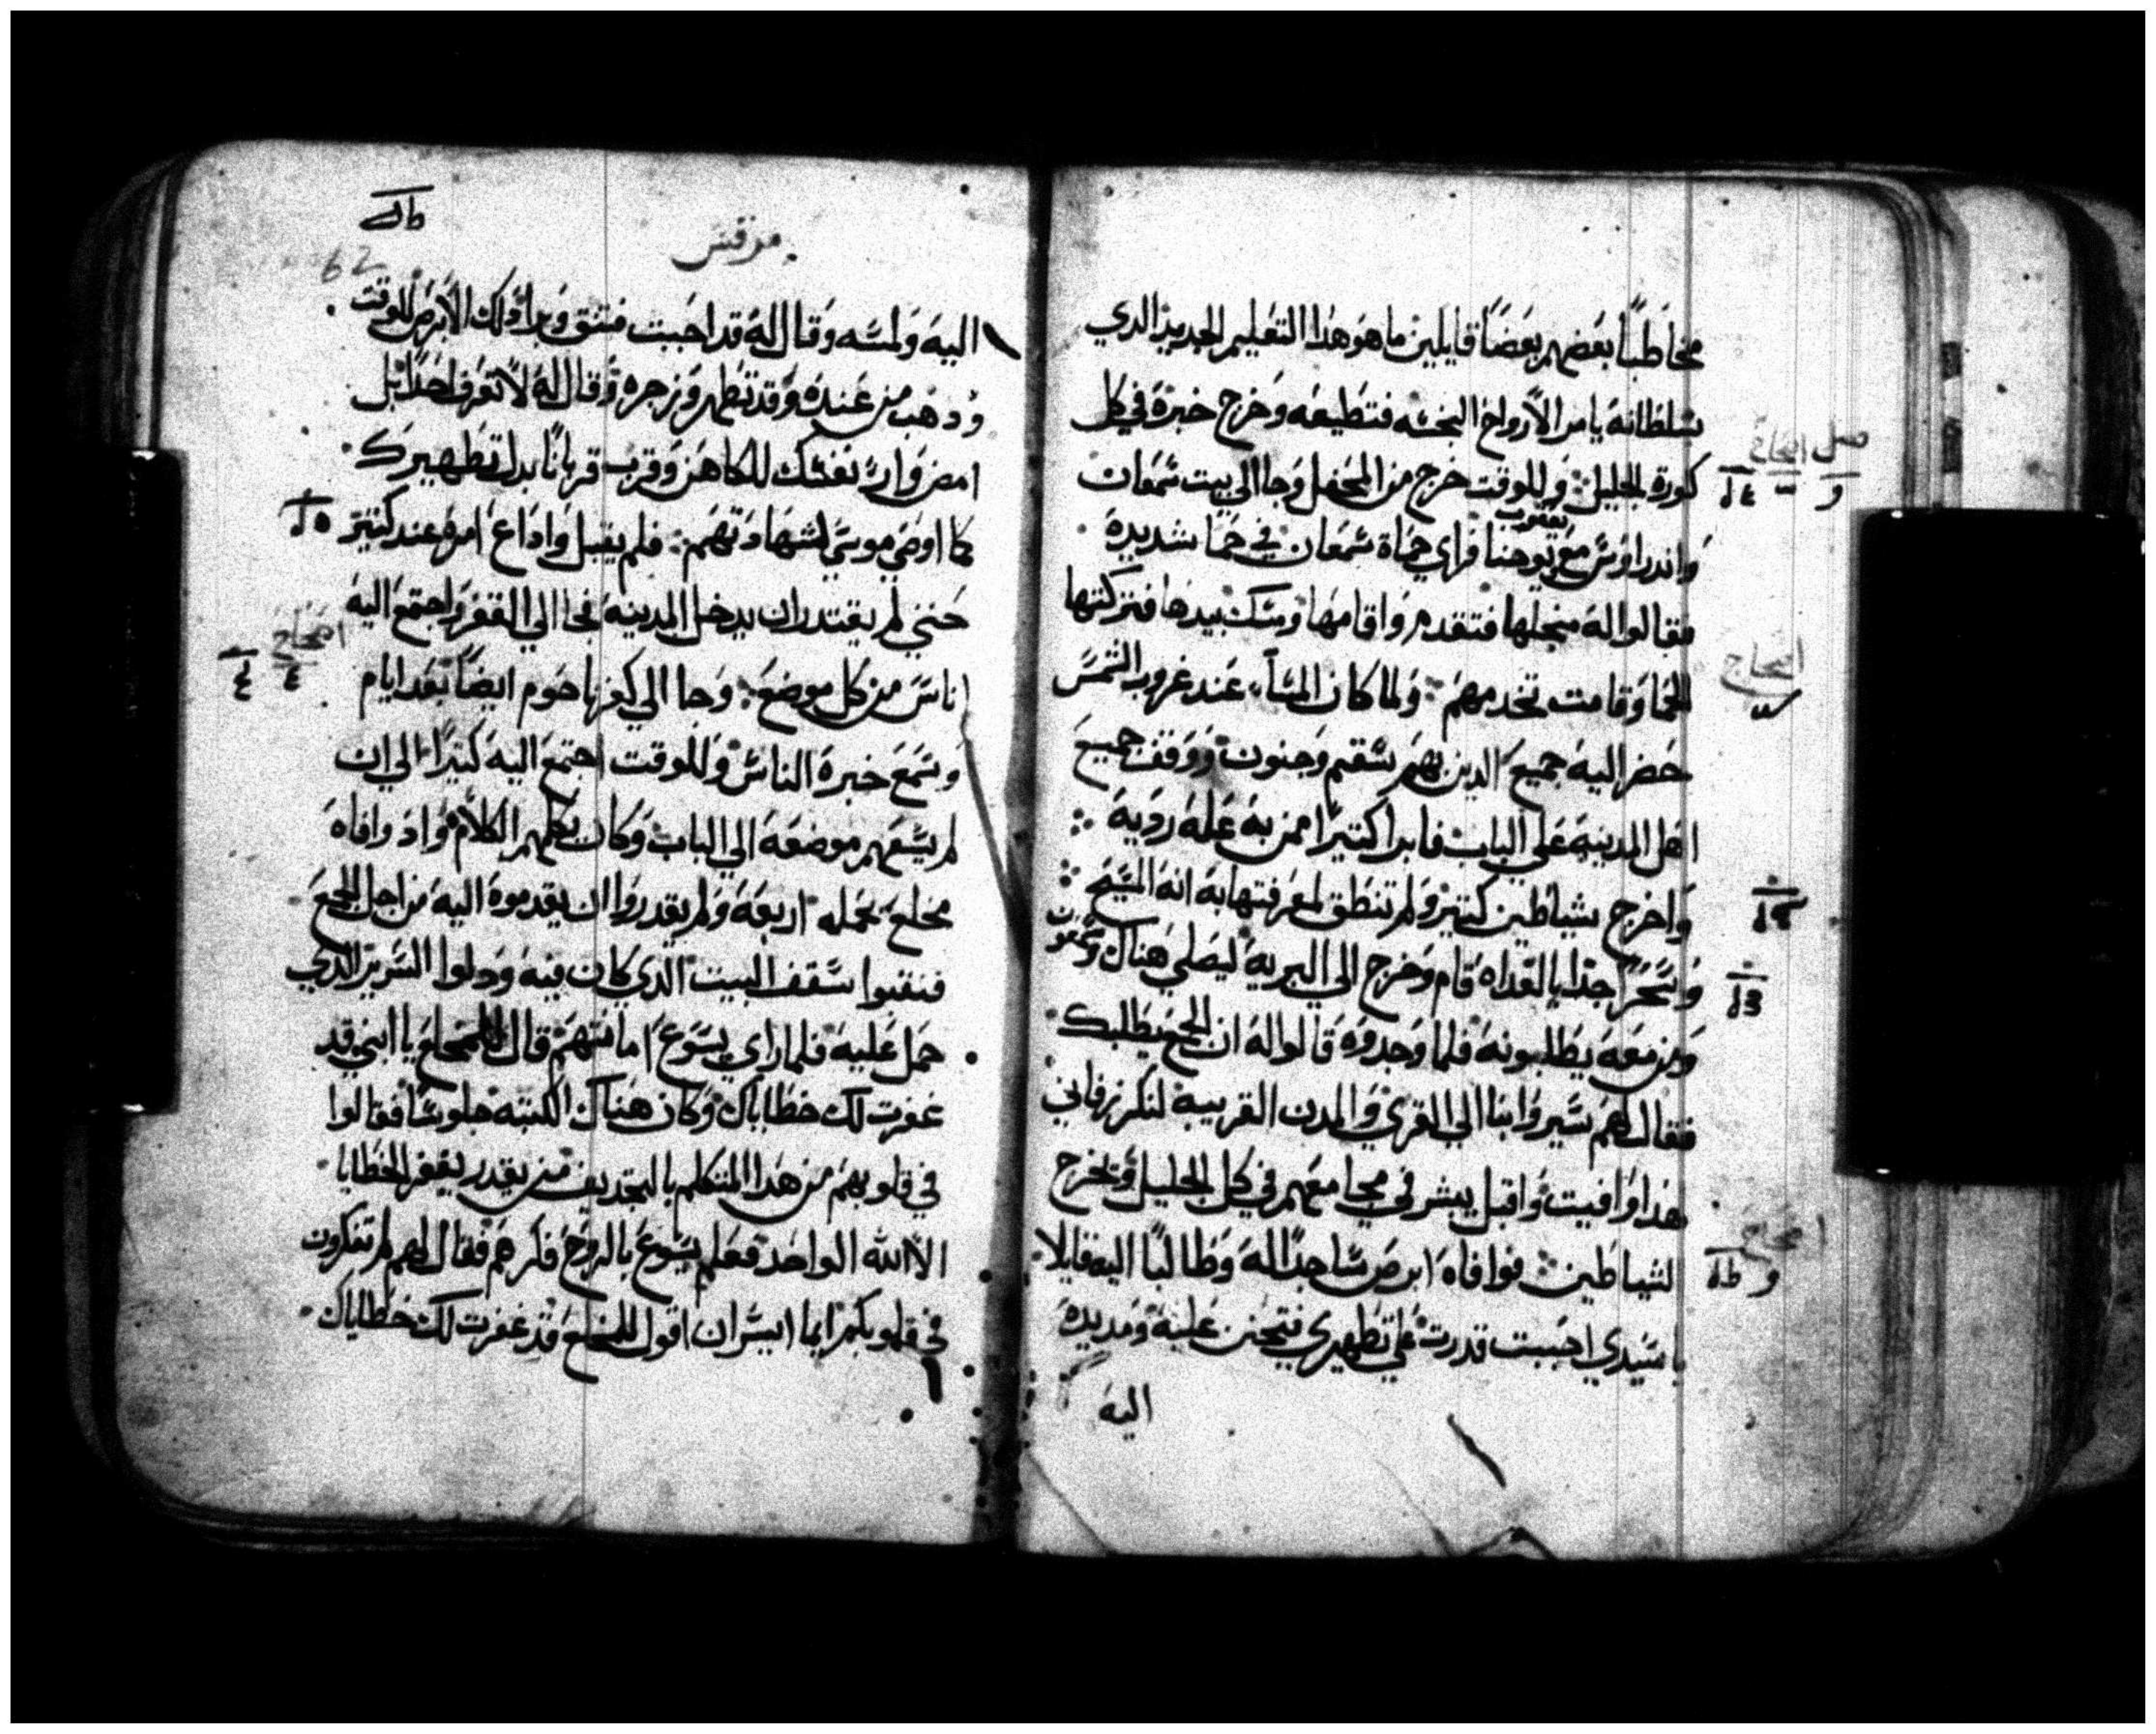 مخاطبًا بعضهم بعضًا قايلين ما هو هدا التعليم الجديد الدي
سلطانه يامر الارواح النجسه فتطيعه وخرج خبره في كل
كورة الجليل وللوقت خرج من المحفل وجا الي بيت شمعان
يعقوب
واندراوس مع يوحنا فراي حماة شمعان في حما شديده
فقالوا له منجلها فتقدم واقامها ومسك بيدها فتركتها
الحما وقامت تخدمهم ولما كان المسآء عند غروب الشمس
حضر اليه جميع الدين بهم سقم وجنون ووقف جميع
اهل المدينه علي الباب فابرا كتيرًا ممن به علة رديه
واخرج شياطين كتير ولم تنطق لمعرفتها به انه المسيح
وسحرًا جدا بالغداه قام وخرج الي البريه ليصلي هناك وشمعون
ومن معه يطلبونه فلما وجدوه قالوا له ان الجمع يطلبك
فقال لهم سيروا بنا الي القري والمدن القريبه لنكرز فاني
لهدا وافيت واقبل يبشر في مجامعهم في كل الجليل ويخرج
الشياطين فوافاه ابرص ساجدًا له وطالبًا اليه قايلا
يا سيدي احببت قدرت علي تطهيري فتحنن عليه ومد يده
اليه
فصل اصحاح
اصحاح
اصحاح
مرقس
62
اليه ولمسه وقال له قد احببت فتنق وبرا دلك الابرص للوقت
ودهب من عنده وقد تطهر وزجره وقال له لا تعرف احدًا بل
امض وار نفسك للكاهن وقرب قربانًا بدل تطهيرك
كما اوصي موسي لشهادتهم فلم يقبل واداع امره عند كتير
حتي لم يقتدر ان يدخل المدينه فجا الي القفر واجتمع اليه
اناس من كل موضع وجا الي كفرناحوم ايضًا بعد ايام
وسمع خبره الناس وللوقت اجتمع اليه كتيرًا الي ان
لم يسعهم موضعه الي الباب وكان يكلمهم الكلام واد وافاه
مخلع تحمله اربعه ولم يقدروا ان يقدموه اليه من اجل الجمع
فنقبوا سقف البيت الدي كان فيه ودلوا السرير الدي
حمل عليه فلما راي يسوع امانتهم قال للمخلع يا ابني قد
غفرت لك خطاياك وكان هناك الكتبه جلوسًا فقالوا
في قلوبهم من هدا المتكلم بالتجديف من يقدر يغفر الخطايا
الا الله الواحد فعلم يسوع بالروح فكرهم فقال لهم لم تفكرون
في قلوبكم ايما ايسر ان اقول للمخلع قد غفرت لك خطاياك
اصحاح
٤